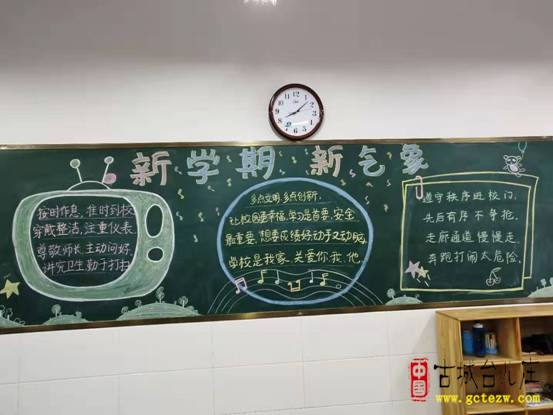 新学期 新气象
按时作息，准时到校
穿戴整洁，注重仪表
尊敬师长主动问好
讲究卫生勤于打扫
多点文明，多点创新，
让校园更幸福，学习是首要，安全
最重要，想要成绩好动手又动脑，
学校是我家，关爱你我他
遵守秩序进校门，
头后有序不争抢，
走廊通道慢慢走
奔跑打闹太危险。
中国
古城台儿庄
www.gctezw.com